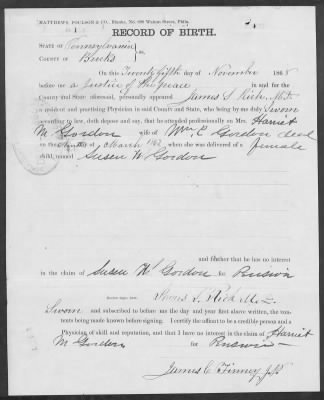 MATTHEWS, POULSON & CO., Blanks, No. 808 Walnut Street, Phila.
RECORD OF BIRTH.
STATE OF Pennsylvania
COUNTY OF Bucks } ss.
On this Twenty fifth day of November 1868
before me a Justice of the peace in and for the
County and State aforesaid, personally appeared James S Rich M.D.
a resident and practising Physician in said County and State, who being by me duly Sworn
according to law, doth depose and say, that he attended professionally on Mrs. Harriet
M Gordon wife of Wm R Gordon dead
on the day of March 1862 when she was delivered of a female
child, named Susen W Gordon
and further that he has no interest
in the claim of Susen W Gordon for
James S. Rich M.D.
Sworn and subscribed to before me the day and year first above written, the con-
tents being made known before signing. I certify the affiant to be a credible person and a
Physician of skill and reputation, and that I have no interest in the claim of Harriet
M Gordon for
James C Finney J.P.